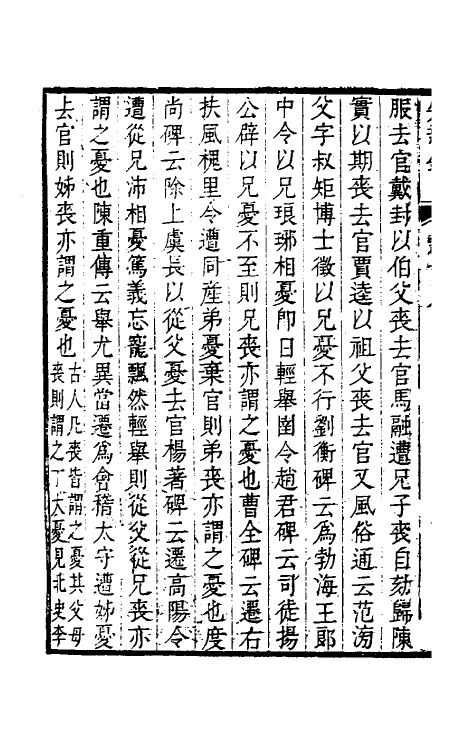 服去官戴封以伯父喪去官馬融遭兄子喪自劾歸陳
實以期喪去官賈逵以祖父喪去官又風俗通云范滂
父字叔矩博士徵以兄憂不行劉衡碑云爲勃海王郎
中令以兄琅琊相憂卽日輕舉圉令趙君碑云司徒揚
公辟以兄憂不至則兄喪亦謂之憂也曹全碑云遷右
扶風槐里令遭同產弟憂棄官則弟喪亦謂之憂也度
尚碑云除上虞長以從父憂去官楊著碑云遷高陽令
遭從兄沛相憂篤義忘寵飄然輕舉則從父從兄喪亦
謂之憂也陳重傳云舉尤異當遷爲會稽太守遭姊憂
去官則姊喪亦謂之憂也古人凡喪皆謂之憂其父母
喪則謂之丁大憂見北史李